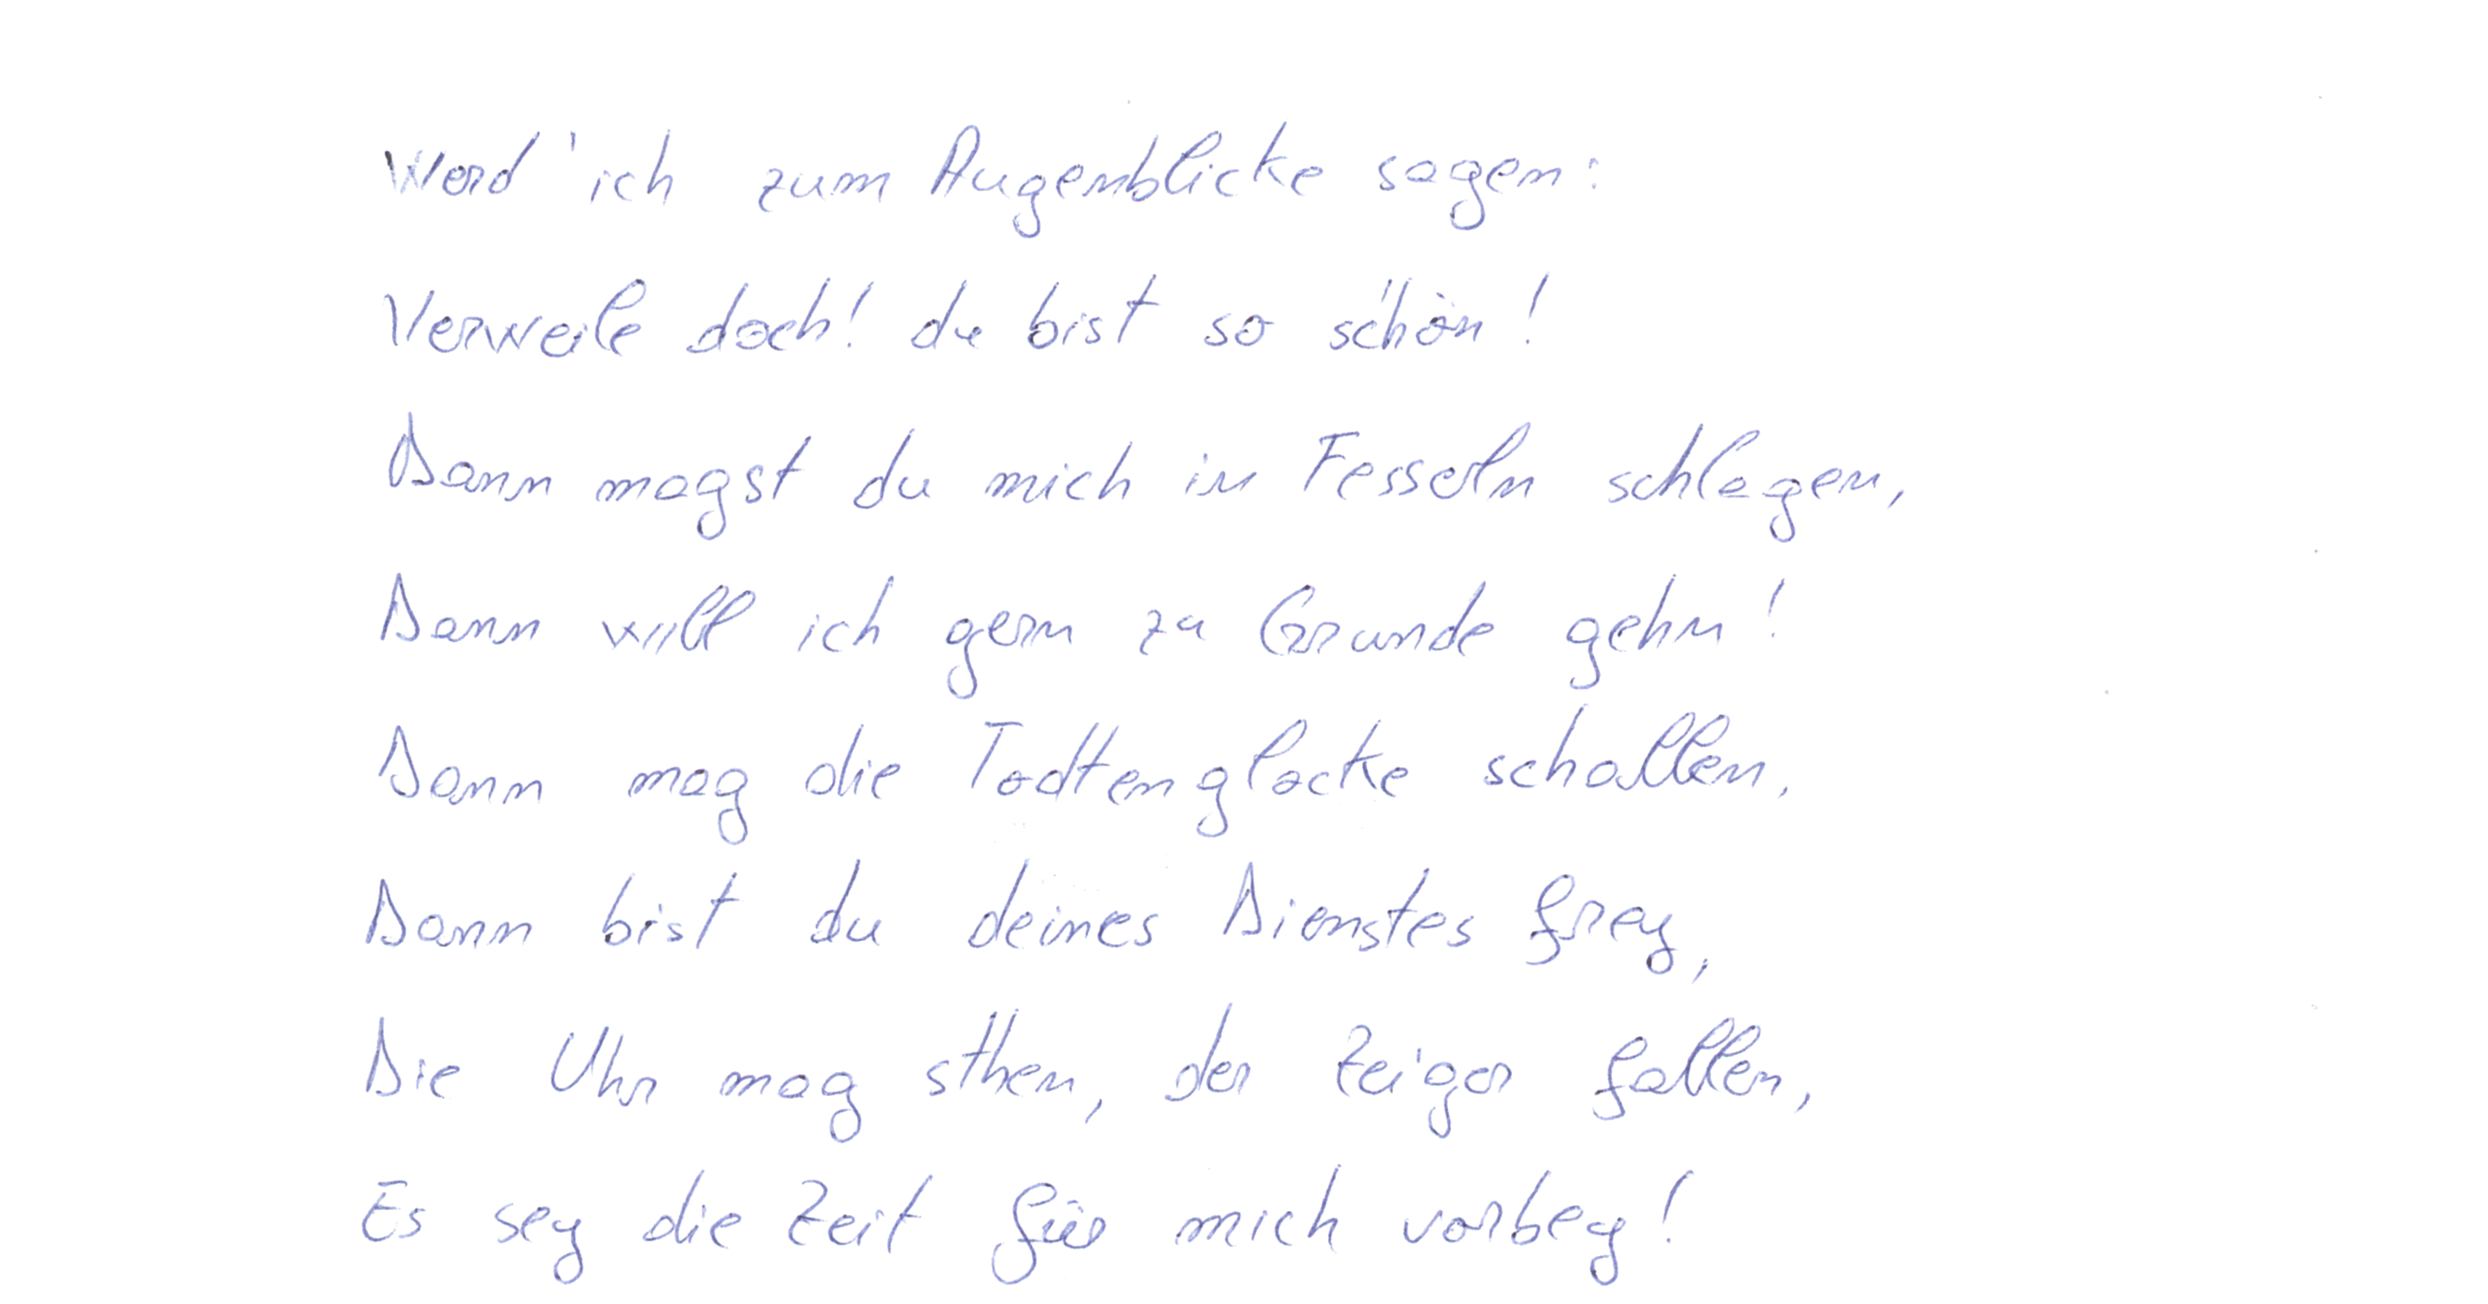 Werd' ich zum Augenblicke sagen:
Verweile doch! du bist so schön!
Dann magst du mich in Fesseln schlagen,
Dann will ich gern zu Grunde gehn!
Dann mag die Todtenglocke schallen,
Dann bist du deines Dienstes frey,
Die Uhr mag sthen, der Zeiger fallen,
Es sey die Zeit für mich vorbey!